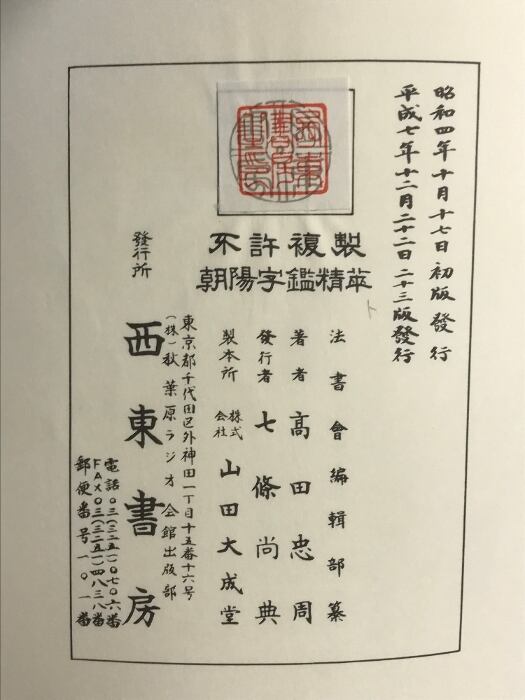 昭和四年十月十七日初版發行
平成七年十二月二十二日二十三版發行
不許複製
朝陽字鑑精萃
法書會編輯部纂
著者 高田忠周
發行者 七條尚典
製本所 株式会社 山田大成堂
東京都千代田区外神田一丁目十五番十六号
(株)秋葉原ラジオ会館出版部
發行所
西東書房
電話〇三(三二五一)〇七〇六番
FAX〇三(三二五一)四八三八番
郵便番号一〇一番